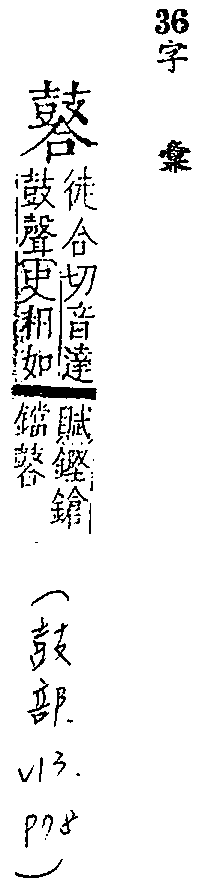 36
字彙
䶀
徒合切音達
鼓聲史相如
賦鏗鎗
鐺䶀
(鼓部. V13. P78)